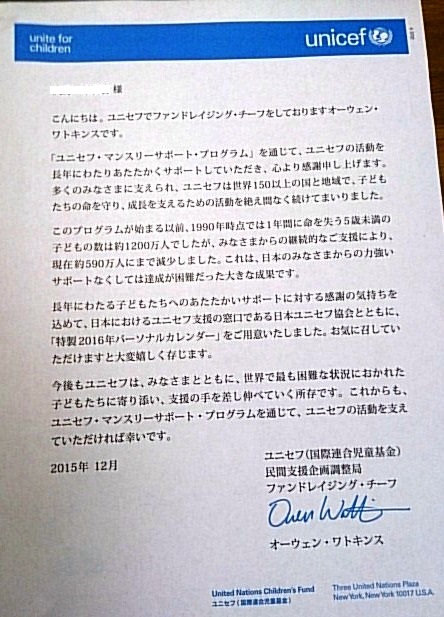 unite for
children
unicef
様
こんにちは。ユニセフでファンドレイジング・チーフをしておりますオーウェン・
ワトキンスです。
「ユニセフ・マンスリーサポート・プログラム」を通じて、ユニセフの活動を
長年にわたりあたたかくサポートしていただき、心より感謝申し上げます。
多くのみなさまに支えられ、ユニセフは世界150以上の国と地域で、子ども
たちの命を守り、成長を支えるための活動を絶え間なく続けてまいりました。
このプログラムが始まる以前、1990年時点では1年間に命を失う5歳未満の
子どもの数は約1200万人でしたが、みなさまからの継続的なご支援により、
現在約590万人にまで減少しました。これは、日本のみなさまからの力強い
サポートなくしては達成が困難だった大きな成果です。
長年にわたる子どもたちへのあたたかいサポートに対する感謝の気持ちを
込めて、日本におけるユニセフ支援の窓口である日本ユニセフ協会とともに、
「特製2016年パーソナルカレンダー」をご用意いたしました。お気に召してい
ただけますと大変嬉しく存じます。
今後もユニセフは、みなさまとともに、世界で最も困難な状況におかれた
子どもたちに寄り添い、支援の手を差し伸べていく所存です。これからも、
ユニセフ・マンスリーサポート・プログラムを通じて、ユニセフの活動を支え
ていただければ幸いです。
2015年 12月
ユニセフ(国際連合児童基金)
民間支援企画調整局
ファンドレイジング・チーフ
オーウェン・ワトキンス
United Nations Children's Fund
ユニセフ(国際連合児童基金)
Three United Nations Plaza
New York, New York 10017 U.S.A.